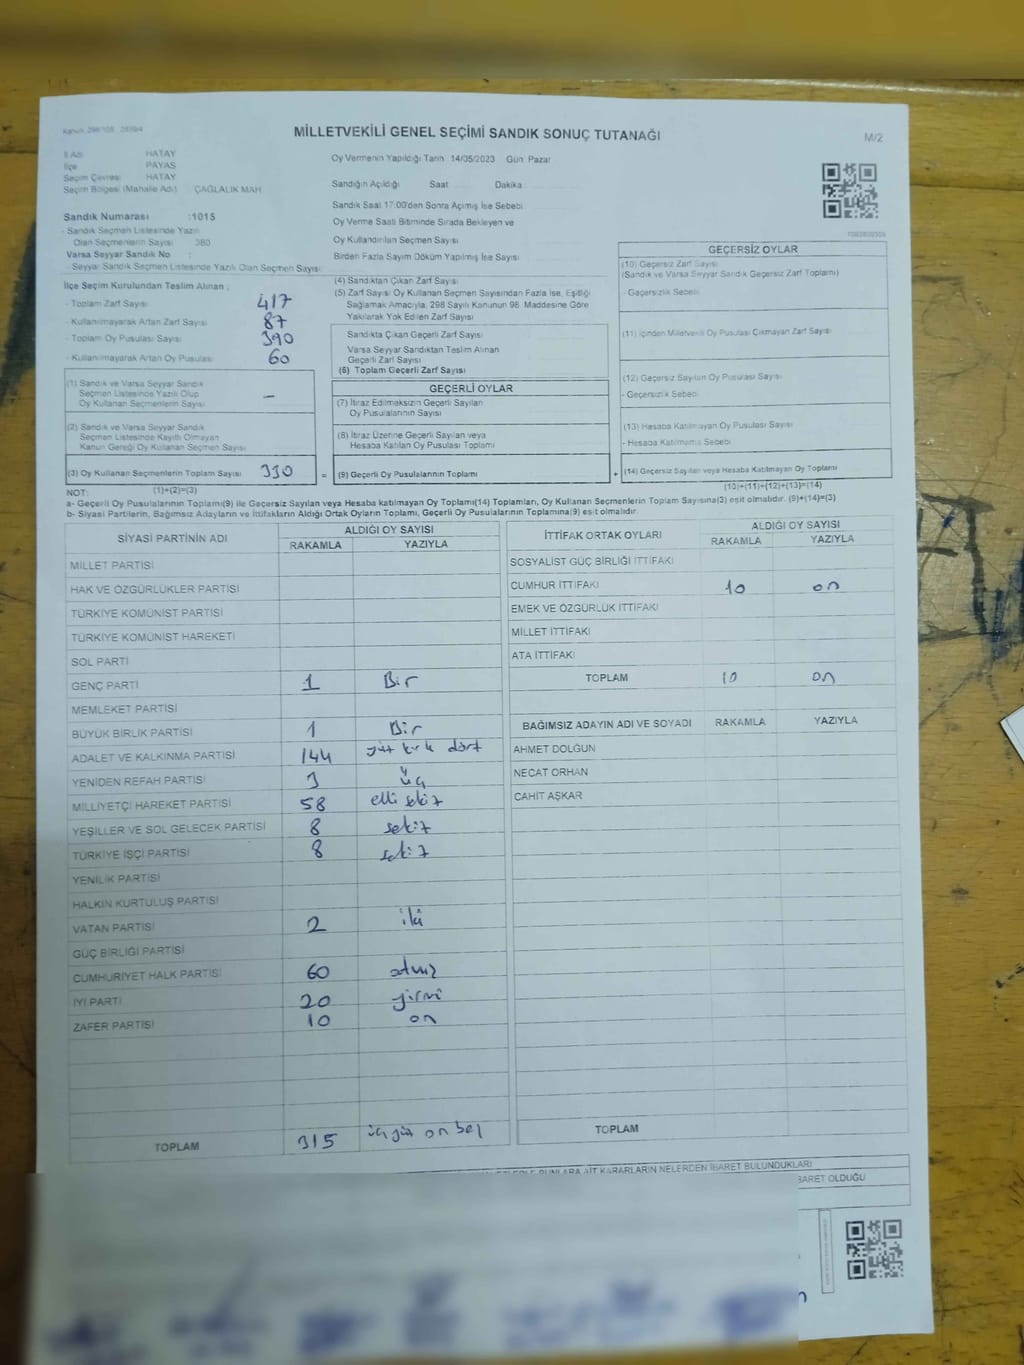 MİLLETVEKİLİ GENEL SEÇİMİ SANDIK SONUÇ TUTANAĞI
M/2
İl Adı HATAY
İlçe PAYAS
Seçim Çevresi HATAY
Seçim Bölgesi (Mahalle Adı) ÇAĞLALIK MAH
Sandık Numarası :1015
- Sandık Seçmen Listesinde Yazılı
Olan Seçmenlerin Sayısı 380
Varsa Seyyar Sandık No :
- Seyyar Sandık Seçmen Listesinde Yazılı Olan Seçmen Sayısı
Oy Vermenin Yapıldığı Tarih 14/05/2023 Gün Pazar
Sandığın Açıldığı Saat Dakika
Sandık Saat 17:00'den Sonra Açılmış İse Sebebi
Oy Verme Saati Bitiminde Sırada Bekleyen ve
Oy Kullandırılan Seçmen Sayısı
Birden Fazla Sayım Döküm Yapılmış İse Sayısı
İlçe Seçim Kurulundan Teslim Alınan ;
- Toplam Zarf Sayısı 417
- Kullanılmayarak Artan Zarf Sayısı 87
- Toplam Oy Pusulası Sayısı 390
- Kullanılmayarak Artan Oy Pusulası 60
(1) Sandık ve Varsa Seyyar Sandık
Seçmen Listesinde Yazılı Olup
Oy Kullanan Seçmenlerin Sayısı –
(2) Sandık ve Varsa Seyyar Sandık
Seçmen Listesinde Kayıtlı Olmayan
Kanun Gereği Oy Kullanan Seçmen Sayısı
(3) Oy Kullanan Seçmenlerin Toplam Sayısı 330 =
(1)+(2)=(3)
(4) Sandıktan Çıkan Zarf Sayısı
(5) Zarf Sayısı Oy Kullanan Seçmen Sayısından Fazla İse, Eşitliği
Sağlamak Amacıyla, 298 Sayılı Kanunun 98. Maddesine Göre
Yakılarak Yok Edilen Zarf Sayısı
Sandıkta Çıkan Geçerli Zarf Sayısı
Varsa Seyyar Sandıktan Teslim Alınan
Geçerli Zarf Sayısı
(6) Toplam Geçerli Zarf Sayısı
GEÇERLİ OYLAR
(7) İtiraz Edilmeksizin Geçerli Sayılan
Oy Pusulalarının Sayısı
(8) İtiraz Üzerine Geçerli Sayılan veya
Hesaba Katılan Oy Pusulası Toplamı
(9) Geçerli Oy Pusulalarının Toplamı +
GEÇERSİZ OYLAR
(10) Geçersiz Zarf Sayısı
(Sandık ve Varsa Seyyar Sandık Geçersiz Zarf Toplamı)
- Geçersizlik Sebebi
(11) İçinden Milletvekili Oy Pusulası Çıkmayan Zarf Sayısı
(12) Geçersiz Sayılan Oy Pusulası Sayısı
- Geçersizlik Sebebi
(13) Hesaba Katılmayan Oy Pusulası Sayısı
- Hesaba Katılmama Sebebi
(14) Geçersiz Sayılan veya Hesaba Katılmayan Oy Toplamı
(10)+(11)+(12)+(13)=(14)
NOT:
a- Geçerli Oy Pusulalarının Toplamı(9) ile Geçersiz Sayılan veya Hesaba katılmayan Oy Toplamı(14) Toplamları, Oy Kullanan Seçmenlerin Toplam Sayısına(3) eşit olmalıdır. (9)+(14)=(3)
b- Siyasi Partilerin, Bağımsız Adayların ve İttifakların Aldığı Ortak Oyların Toplamı, Geçerli Oy Pusulalarının Toplamına(9) eşit olmalıdır.
SİYASİ PARTİNİN ADI ALDIĞI OY SAYISI
RAKAMLA YAZIYLA
MİLLET PARTİSİ
HAK VE ÖZGÜRLÜKLER PARTİSİ
TÜRKİYE KOMÜNİST PARTİSİ
TÜRKİYE KOMÜNİST HAREKETİ
SOL PARTİ
GENÇ PARTİ 1 Bir
MEMLEKET PARTİSİ
BÜYÜK BİRLİK PARTİSİ 1 Bir
ADALET VE KALKINMA PARTİSİ 144 yüz kırk dört
YENİDEN REFAH PARTİSİ 3 üç
MİLLİYETÇİ HAREKET PARTİSİ 58 elli sekiz
YEŞİLLER VE SOL GELECEK PARTİSİ 8 sekiz
TÜRKİYE İŞÇİ PARTİSİ 8 sekiz
YENİLİK PARTİSİ
HALKIN KURTULUŞ PARTİSİ
VATAN PARTİSİ 2 iki
GÜÇ BİRLİĞİ PARTİSİ
CUMHURİYET HALK PARTİSİ 60 atmış
İYİ PARTİ 20 yirmi
ZAFER PARTİSİ 10 on
TOPLAM 315 üçyüz on beş
İTTİFAK ORTAK OYLARI ALDIĞI OY SAYISI
RAKAMLA YAZIYLA
SOSYALİST GÜÇ BİRLİĞİ İTTİFAKI
CUMHUR İTTİFAKI 10 on
EMEK VE ÖZGÜRLÜK İTTİFAKI
MİLLET İTTİFAKI
ATA İTTİFAKI
TOPLAM 10 on
BAĞIMSIZ ADAYIN ADI VE SOYADI RAKAMLA YAZIYLA
AHMET DOLGUN
NECAT ORHAN
CAHİT AŞKAR
TOPLAM
BUNLARA AİT KARARLARIN NELERDEN İBARET BULUNDUKLARI
BARET OLDUĞU